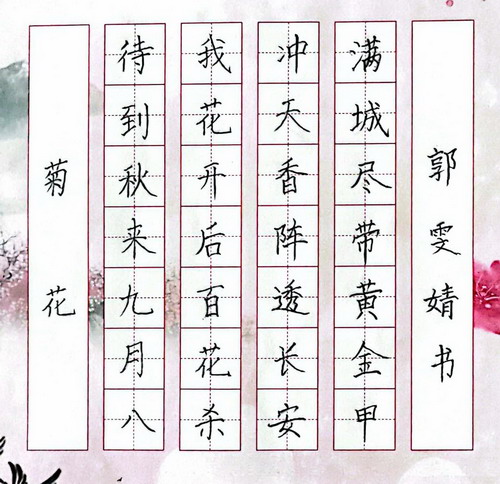 菊花
待到秋来九月八
我花开后百花杀
冲天香阵透长安
满城尽带黄金甲
郭雯婧书